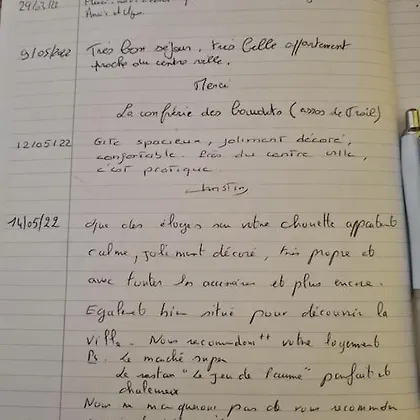 29/03/22 Merci
Anaïs et Ugo
9/05/2022 Très bon séjour, très belle appartement
proche du centre ville.
Merci
La confrérie des baudets (assos de Trail)
12/05/22 Gite spacieux, joliment décoré,
confortable. Près du centre ville,
c'est pratique.
Christine
14/05/22 Que des éloges sur votre chouette appartement
calme, joliment décoré, très propre et
avec toutes les accessoires et plus encore.
Egalement bien situé pour découvrir la
ville. Nous recommandons ++ votre logement
Ps. Le marché super
Le restau "Le jeu de Paume" parfait et
chaleureux
Nous ne manquerons pas de vous recomman